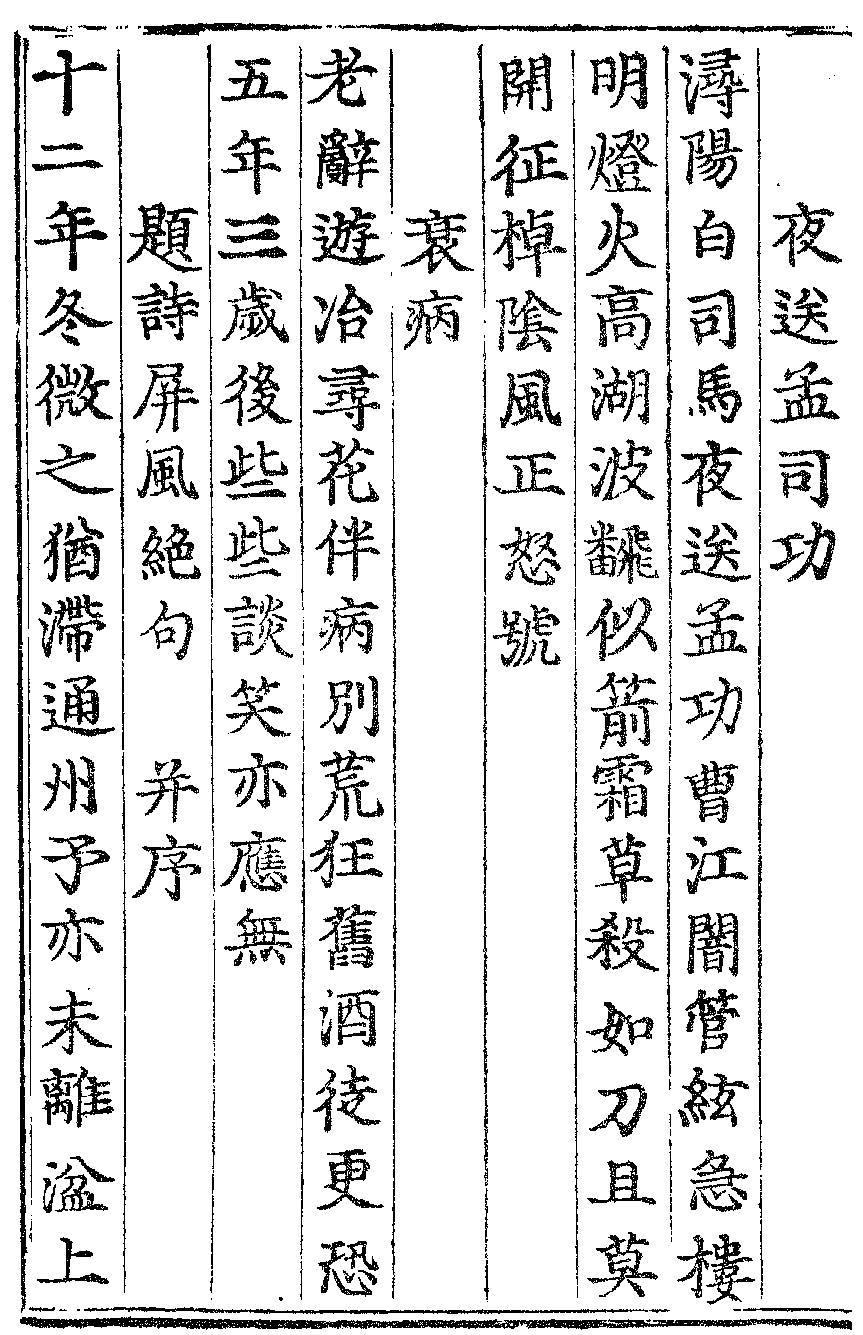 夜送孟司功
潯陽白司馬夜送孟功曹江闇管絃急樓
明燈火高湖波翻似箭霜草殺如刀且莫
開征棹陰風正怒號
衰病
老辭遊冶尋花伴病別荒狂舊酒徒更恐
五年三歲後些些談笑亦應無
題詩屏風絕句　并序
十二年冬微之猶滯通州予亦未離湓上